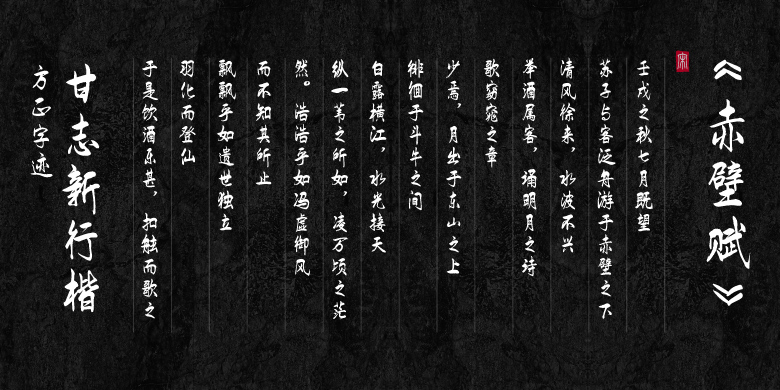 《赤壁赋》
宋
壬戌之秋七月既望
苏子与客泛舟游于赤壁之下
清风徐来，水波不兴
举酒属客，诵明月之诗
歌窈窕之章
少焉，月出于东山之上
徘徊于斗牛之间
白露横江，水光接天
纵一苇之所如，凌万顷之茫
然。浩浩乎如冯虚御风
而不知其所止
飘飘乎如遗世独立
羽化而登仙
于是饮酒乐甚，扣触而歌之
甘志新行楷
方正字迹